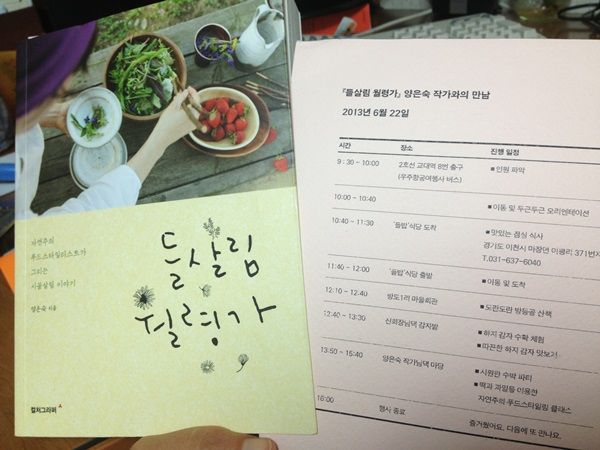 자연주의
푸드스타일리스트가
그리는
시골살림 이야기
양은숙 지음
들살림
월령가
컬처그라퍼
『들살림 월령가』 양은숙 작가와의 만남
2013년 6월 22일
시간 장소 진행 일정
9 : 30 - 10:00 2호선 교대역 8번 출구 ■ 인원 파악
(우주항공여행사 버스)
10:00 - 10:40 ■ 이동 및 두근두근 오리엔테이션
10:40 - 11:30 '들밥'식당 도착 ■ 맛있는 점심 식사
경기도 이천시 마장면 이평리 371번지
T.031-637-6040
11:40 - 12:00 '들밥'식당 출발 ■ 이동 및 도착
12:10 - 12:40 방도1리 마을회관 ■ 도란도란 방등골 산책
12:40 - 13:30 신회장님댁 감자밭 ■ 하지 감자 수확 체험
■ 따끈한 하지 감자 맛보기
13:50 - 15:40 양은숙 작가님댁 마당 ■ 시원한 수박 파티
■ 떡과 과일을 이용한
자연주의 푸드스타일링 클래스
16:00 행사 종료 즐거웠어요. 다음에 또 만나요.